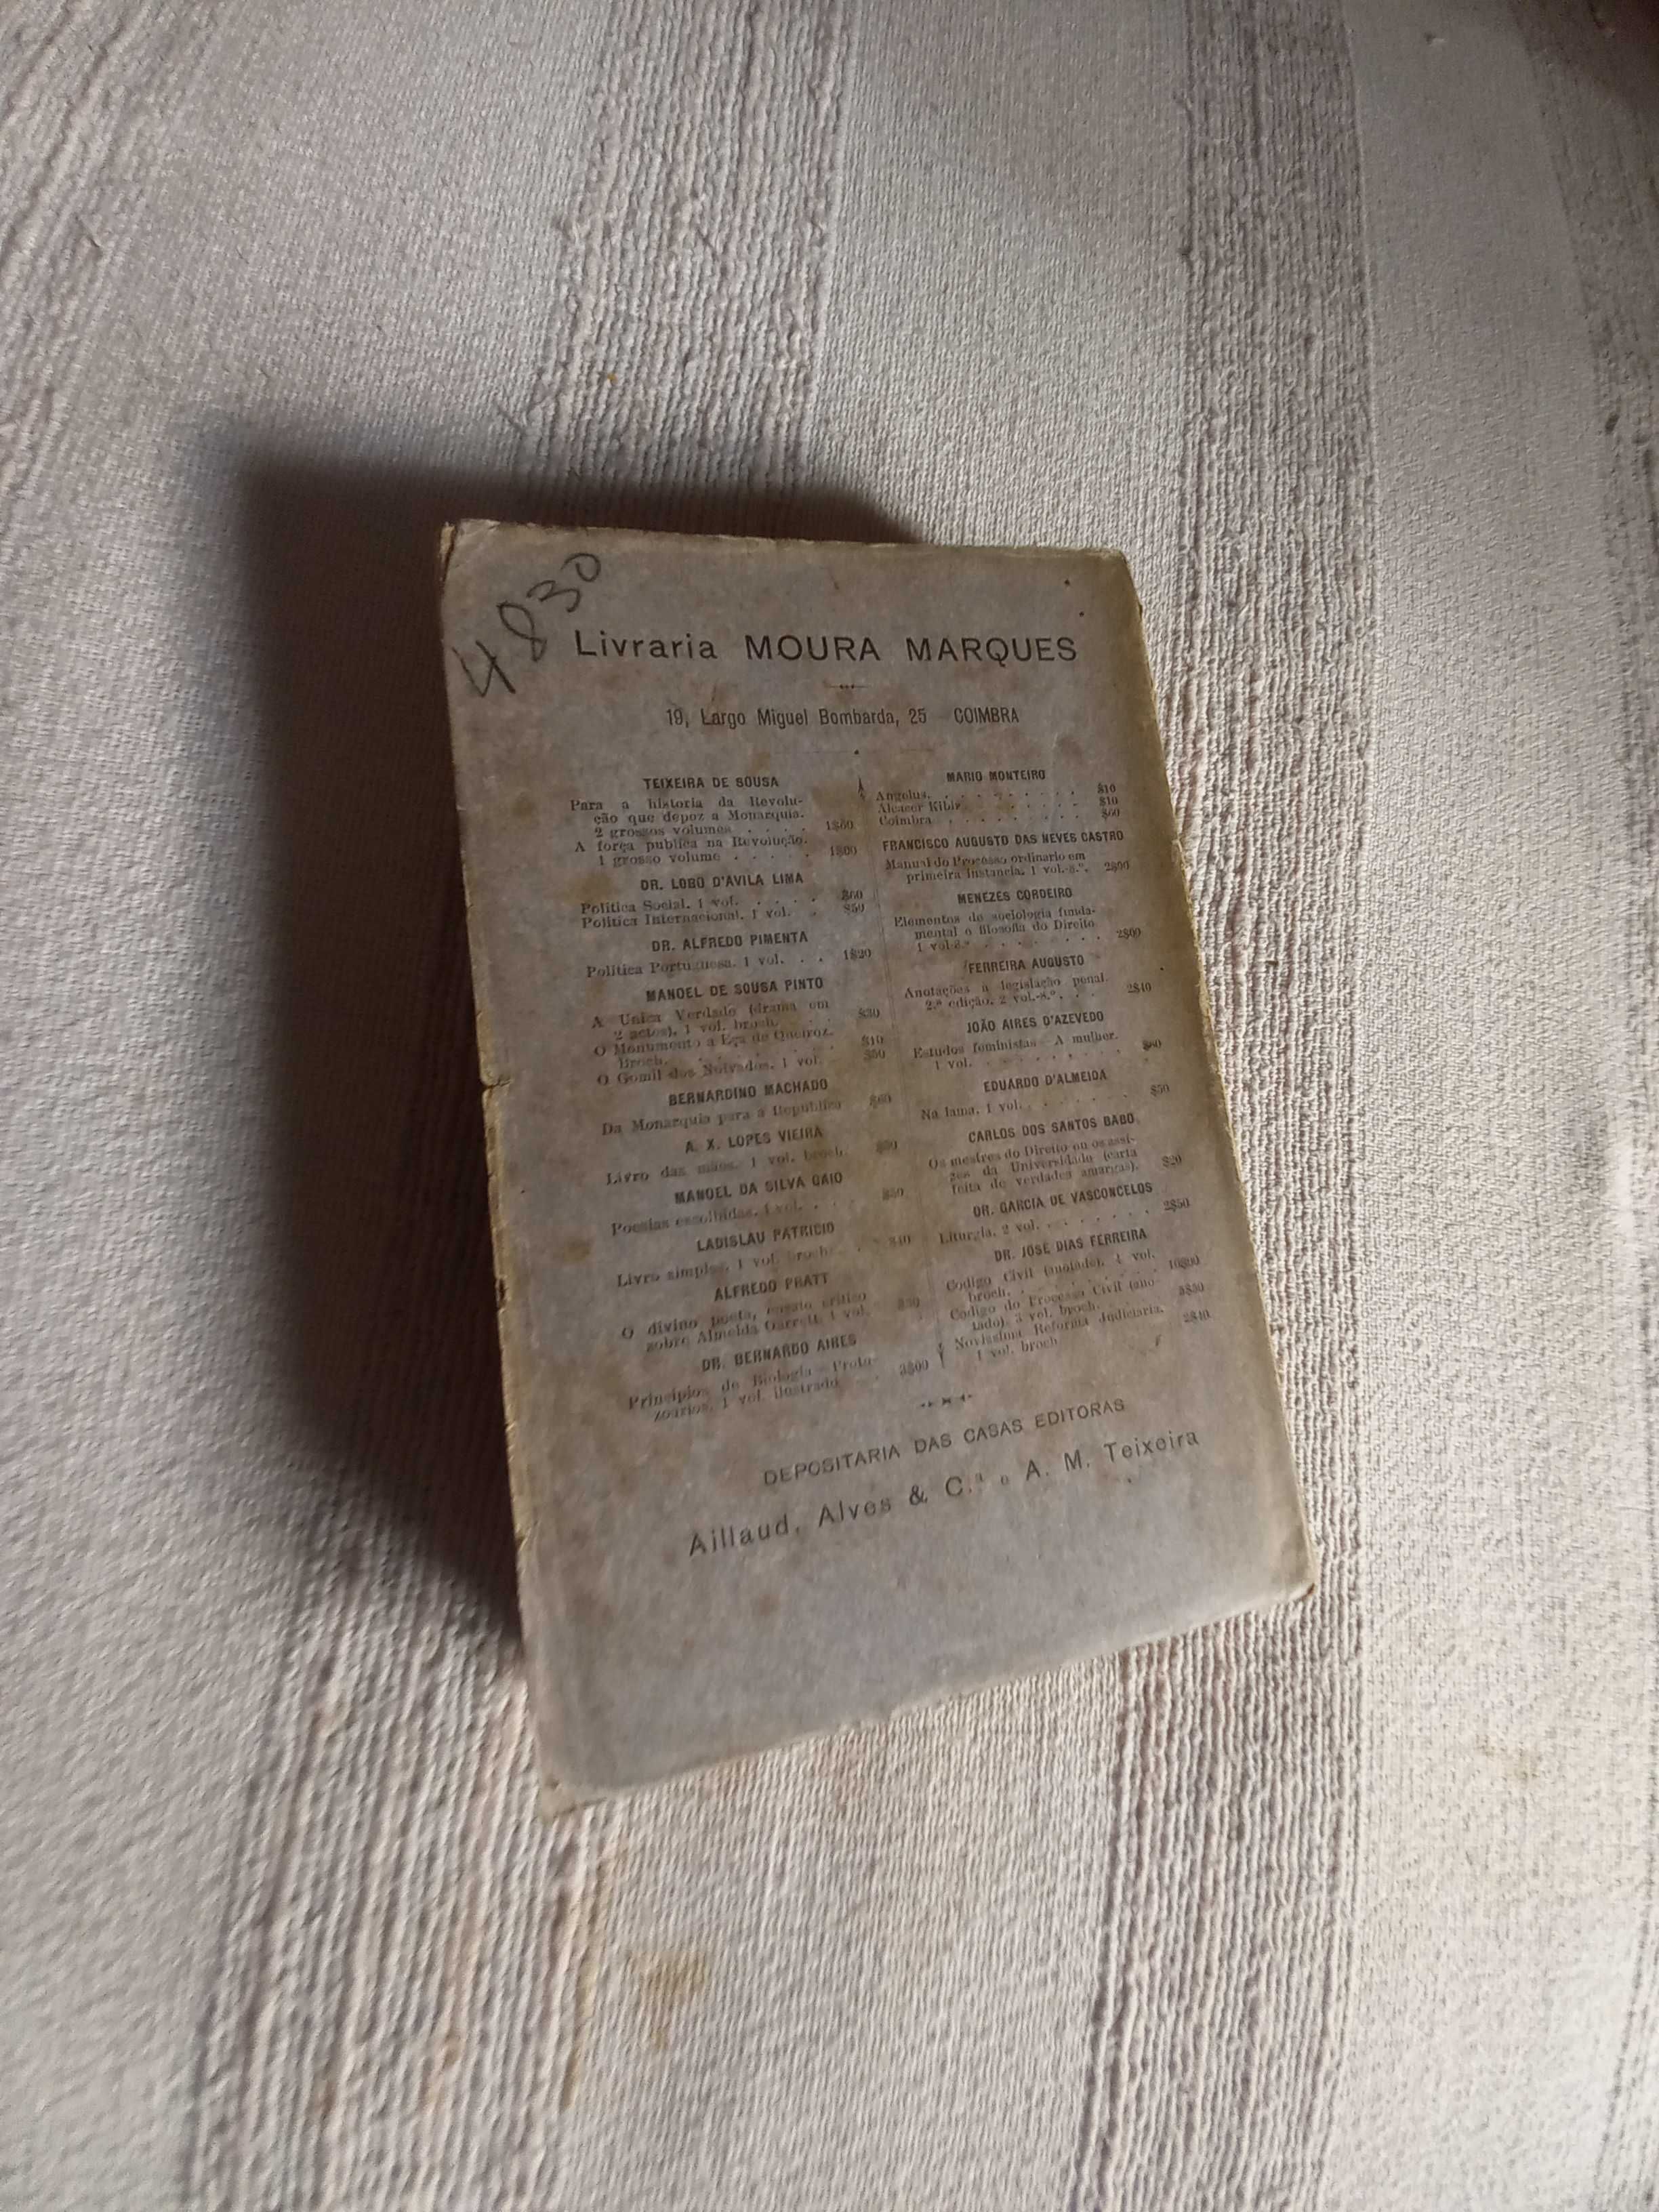 4830
Livraria MOURA MARQUES
19, Largo Miguel Bombarda, 25 — COIMBRA
TEIXEIRA DE SOUSA
Para a historia da Revolu-
ção que depoz a Monarquia.
2 grossos volumes . . . .
A força publica na Revolução.
1 grosso volume . . . . .
DR. LOBO D'AVILA LIMA
Politica Social. 1 vol. . . . . $60
Politica Internacional. 1 vol. . $50
DR. ALFREDO PIMENTA
Politica Portuguesa. 1 vol. . . 1$20
MANOEL DE SOUSA PINTO
A Unica Verdade (drama em
2 actos). 1 vol. broch. $30
O Monumento a Eça de Queiroz.
Broch. . . . . . . . $10
O Gomil dos Noivados. 1 vol. $50
BERNARDINO MACHADO
Da Monarquia para a Republica $60
A. X. LOPES VIEIRA
Livro das mães. 1 vol. broch.
MANOEL DA SILVA GAIO
Poesias escolhidas. 1 vol. . .
LADISLAU PATRICIO
Livro simples. 1 vol. broch. . .
ALFREDO PRATT
O divino poeta, ensaio critico
sobre Almeida Garrett. 1 vol.
DR. BERNARDO AIRES
Principios de Biologia — Proto-
zoarios. 1 vol. ilustrado . 3$00
MARIO MONTEIRO
Angelus. . . . . . . . . $10
Alcacer Kibir . . . . . . $10
Coimbra . . . . . . . . $60
FRANCISCO AUGUSTO DAS NEVES CASTRO
Manual do Processo ordinario em
primeira instancia. 1 vol.-8.º.
MENEZES CORDEIRO
Elementos de sociologia funda-
mental e filosofia do Direito
1 vol-8.º . . . . . . . . 2$00
FERREIRA AUGUSTO
Anotações á legislação penal.
2.ª edição. 2 vol.-8.º. . . 2$40
JOÃO AIRES D'AZEVEDO
Estudos feministas — A mulher.
1 vol. . . . . . . . .
EDUARDO D'ALMEIDA
Na lama. 1 vol. . . . . . . $50
CARLOS DOS SANTOS BABO
Os mestres do Direito ou os assi-
ges da Universidade (carta
feita de verdades amargas). $20
DR. GARCIA DE VASCONCELOS
Liturgia. 2 vol. . . . . . . 2$50
DR. JOSÉ DIAS FERREIRA
Codigo Civil (anotado). 4 vol.
broch. . . . . . . . . 10$00
Codigo do Processo Civil (ano-
tado). 3 vol. broch. . . .
Novissima Reforma Judiciaria.
1 vol. broch 2$40
DEPOSITARIA DAS CASAS EDITORAS
Aillaud, Alves & C.ª e A. M. Teixeira